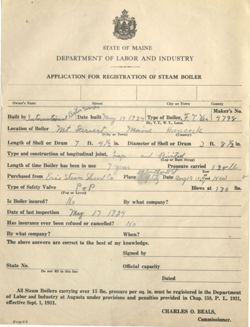 STATE OF MAINE
DEPARTMENT OF LABOR AND INDUSTRY
APPLICATION FOR REGISTRATION OF STEAM BOILER
Owner's Name Street City or Town County
Built by International Date built May 17 1924 Type of Boiler Maker's No. 4798
Location of Boiler Mt Desert Maine Hancock
Length of Shell or Drum 7 ft. 4½ in. Diameter of Shell or Drum 2 ft. 8½ in.
Type and construction of longitudinal joint,
Length of time Boiler has been in use 7 years Pressure carried
Purchased from Erie Steam Shovel Co. New
Type of Safety Valve Pop Blows at 130 lbs.
(Pop or Lever)
Is Boiler insured? No By what company?
Date of last inspection May 17 1924
Has insurance ever been refused or cancelled? No
By what company? When?
The above answers are correct to the best of my knowledge.
Signed by
State No. Official capacity
Dated
All Steam Boilers carrying over 15 lbs. pressure per sq. in. must be registered in the Department of Labor and Industry at Augusta under provisions and penalties provided in Chap. 158, P. L. 1931, effective Sept. 1, 1931.
CHARLES O. BEALS,
Commissioner.